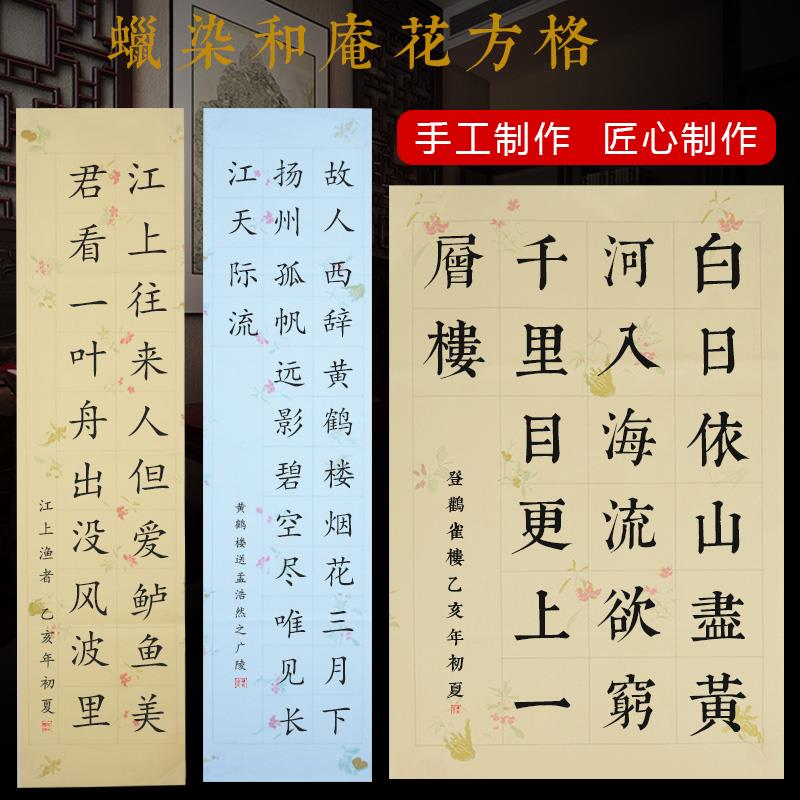 蠟染和庵花方格
手工制作 匠心制作
江上往来人但爱鲈鱼美
君看一叶舟出没风波里
江上渔者 乙亥年初夏
故人西辞黄鹤楼烟花三月下
扬州孤帆远影碧空尽唯见长
江天际流
黄鹤楼送孟浩然之广陵
白日依山盡黃
河入海流欲窮
千里目更上一
層樓
登鸛雀樓乙亥年初夏